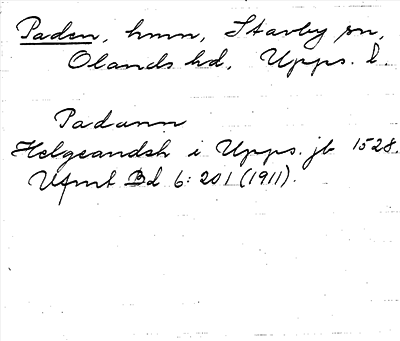 Paden, hmn, Stavby sn,
Olands hd, Upps. l.
Padann
Helgeandsh i Upps. jb 1528.
Ufmt Bd 6: 201 (1911).